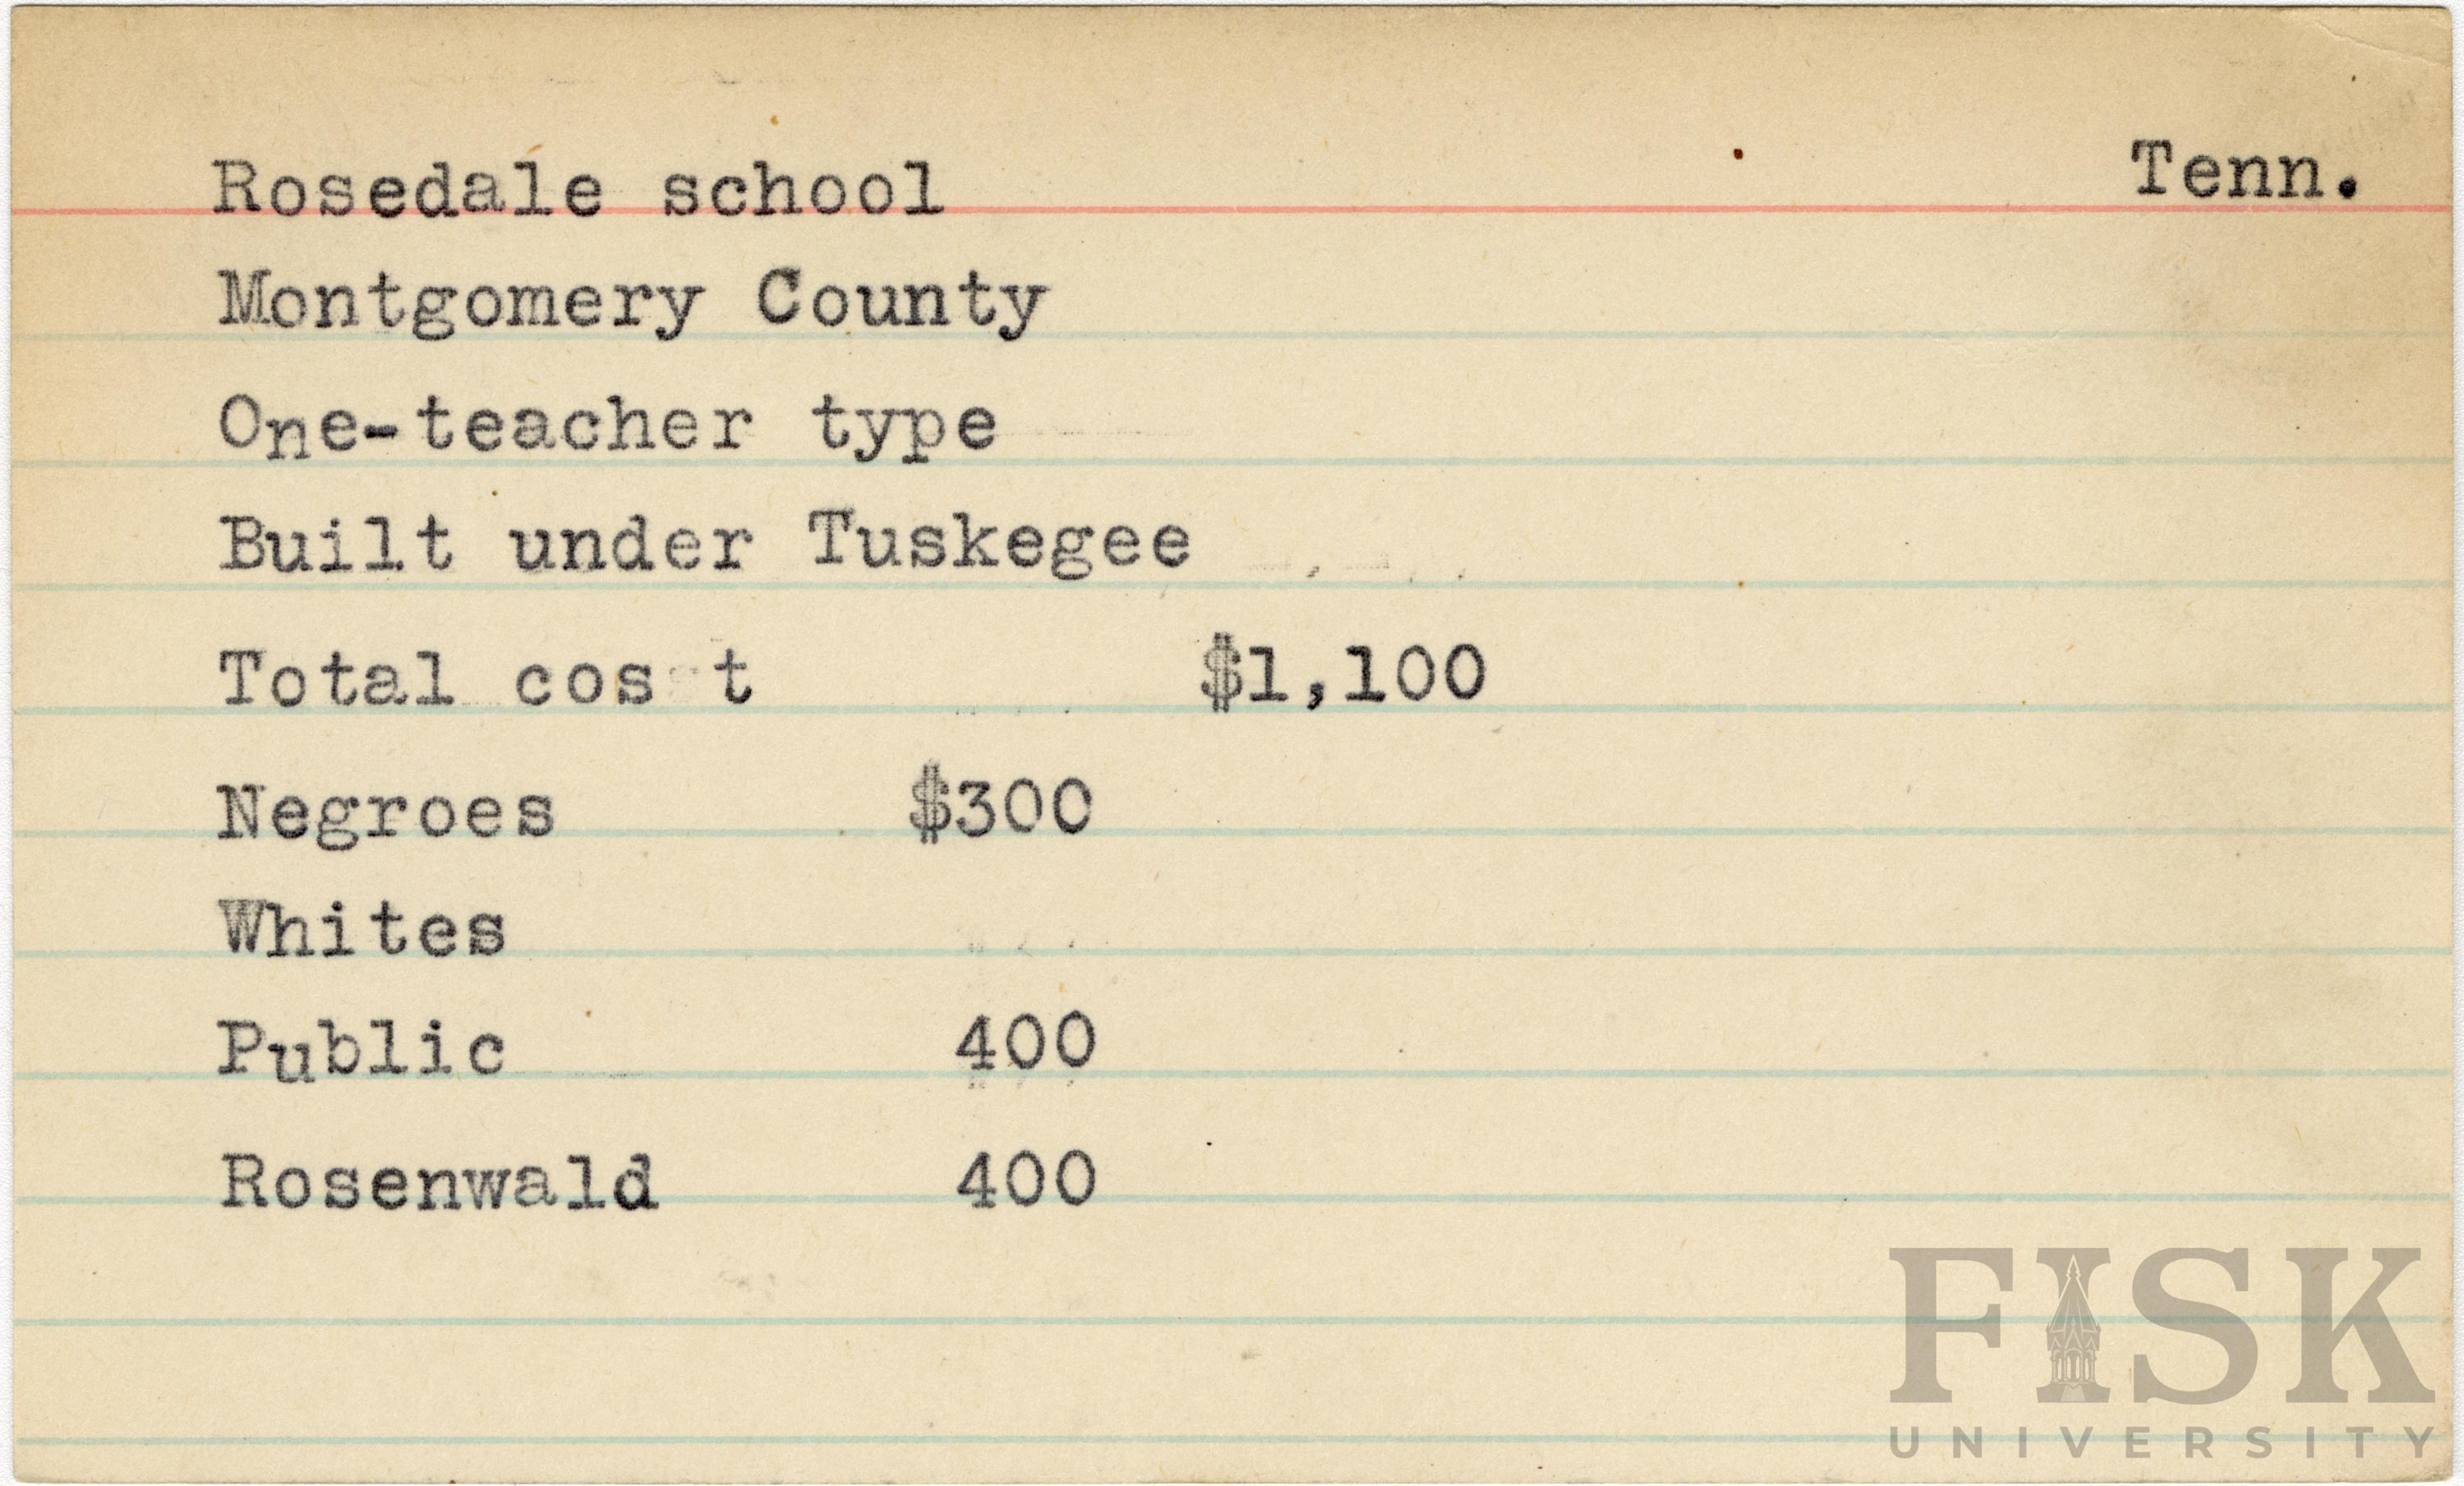 Rosedale school Tenn.
Montgomery County
One-teacher type
Built under Tuskegee
Total cos t $1,100
Negroes $300
Whites
Public 400
Rosenwald 400
FISK
UNIVERSITY